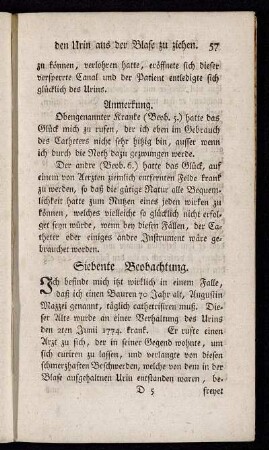 den Urin aus der Blase zu ziehen. 57
zu können, verlohren hatte, eröffnete sich dieser
versperrte Canal und der Patient entledigte sich
glücklich des Urins.
Anmerkung.
Obengenannter Kranke (Beob. 5.) hatte das
Glück mich zu rufen, der ich eben im Gebrauch
des Catheters nicht sehr hitzig bin, ausser wenn
ich durch die Noth dazu gezwungen werde.
Der andre (Beob. 6.) hatte das Glück, auf
einem von Aerzten ziemlich entfernten Felde krank
zu werden, so daß die gütige Natur alle Bequem-
lichkeit hatte zum Nutzen eines jeden wirken zu
können, welches vielleicht so glücklich nicht erfol-
get seyn würde, wenn bey diesen Fällen, der Ca-
theter oder einiges andre Instrument wäre ge-
brauchet worden.
Siebente Beobachtung.
Ich befinde mich itzt wirklich in einem Falle,
daß ich einen Bauren 70 Jahr alt, Augustin
Mazzei genannt, täglich cathetrisiren muß. Die-
ser Alte wurde an einer Verhaltung des Urins
den 2ten Junii 1774. krank. Er rufte einen
Arzt zu sich, der in seiner Gegend wohnte, um
sich curiren zu lassen, und verlangte von diesen
schmerzhaften Beschwerden, welche von dem in der
Blase aufgehaltnen Urin entstanden waren, be-
D 5 freyet